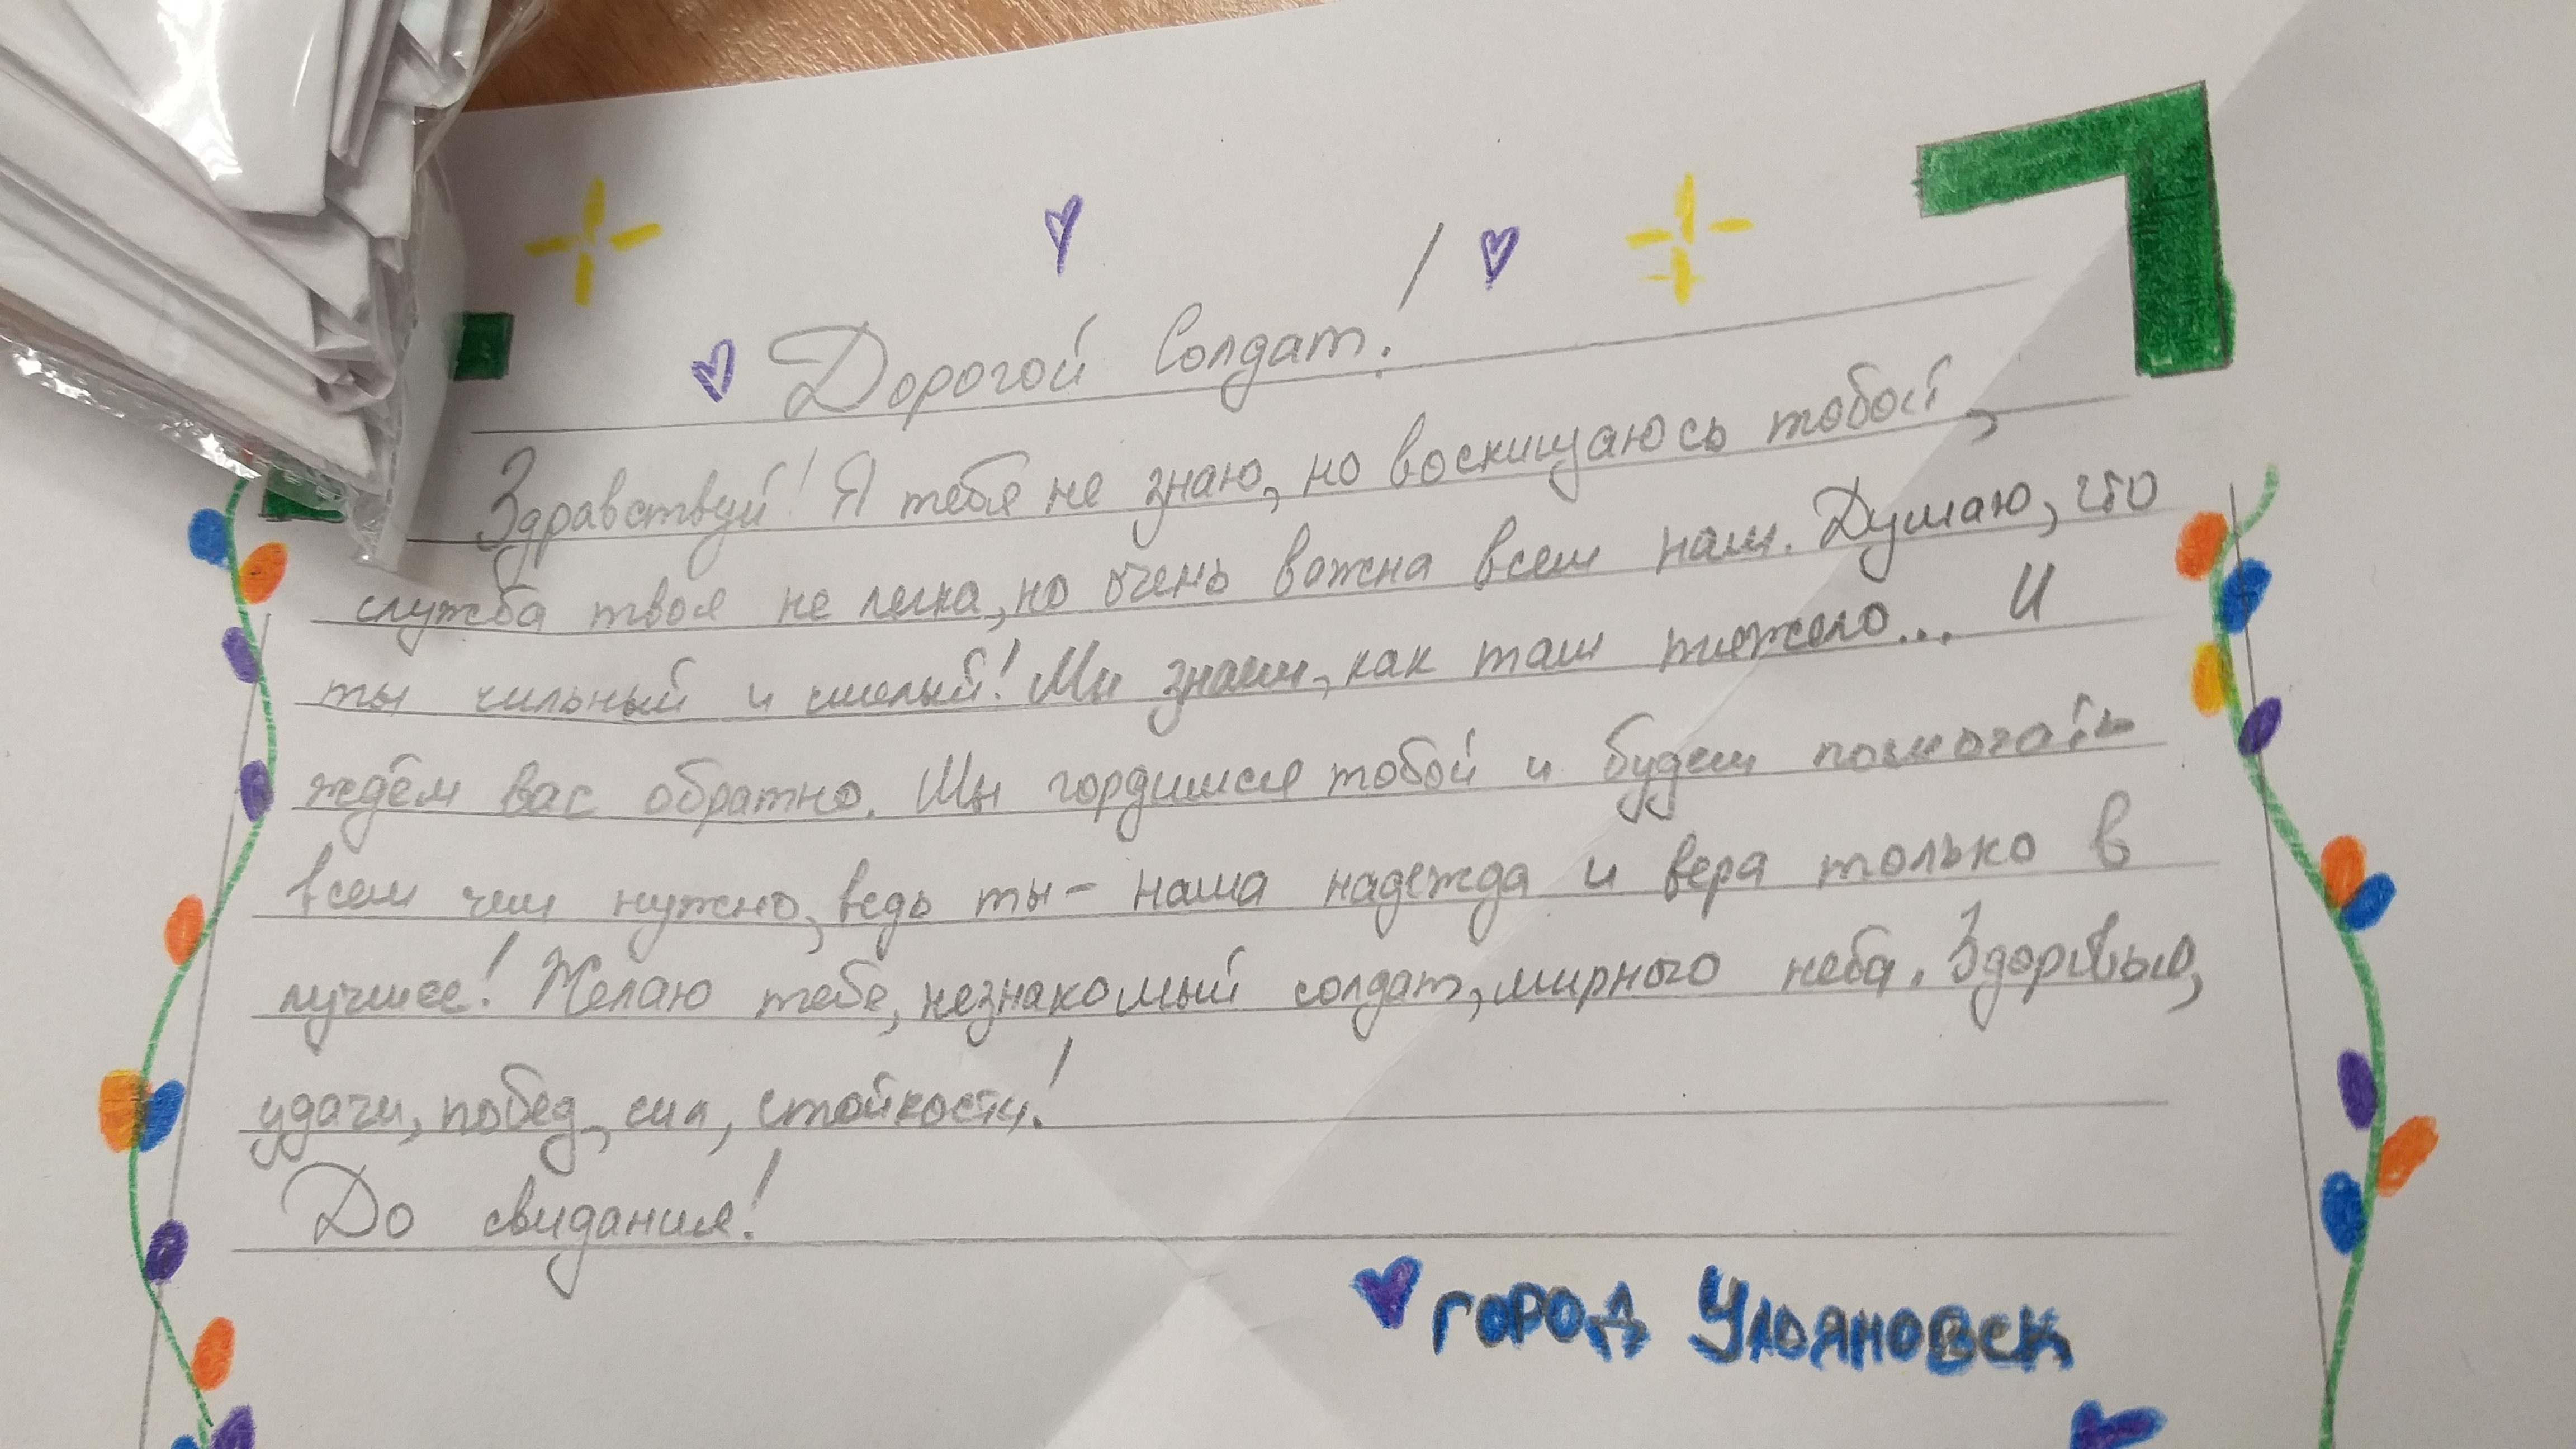 Дорогой Солдат!
Здравствуй! Я тебя не знаю, но восхищаюсь тобой,
служба твоя не легка, но очень важна всем нам. Думаю, что
ты сильный и смелый! Мы знаем, как там тяжело... И
ждём вас обратно. Мы гордимся тобой и будем помогать
всем чем нужно, ведь ты - наша надежда и вера только в
лучшее! Желаю тебе, незнакомый солдат, мирного неба. Здоровья,
удачи, побед, сил, стойкости!
До свидания!
город Ульяновск